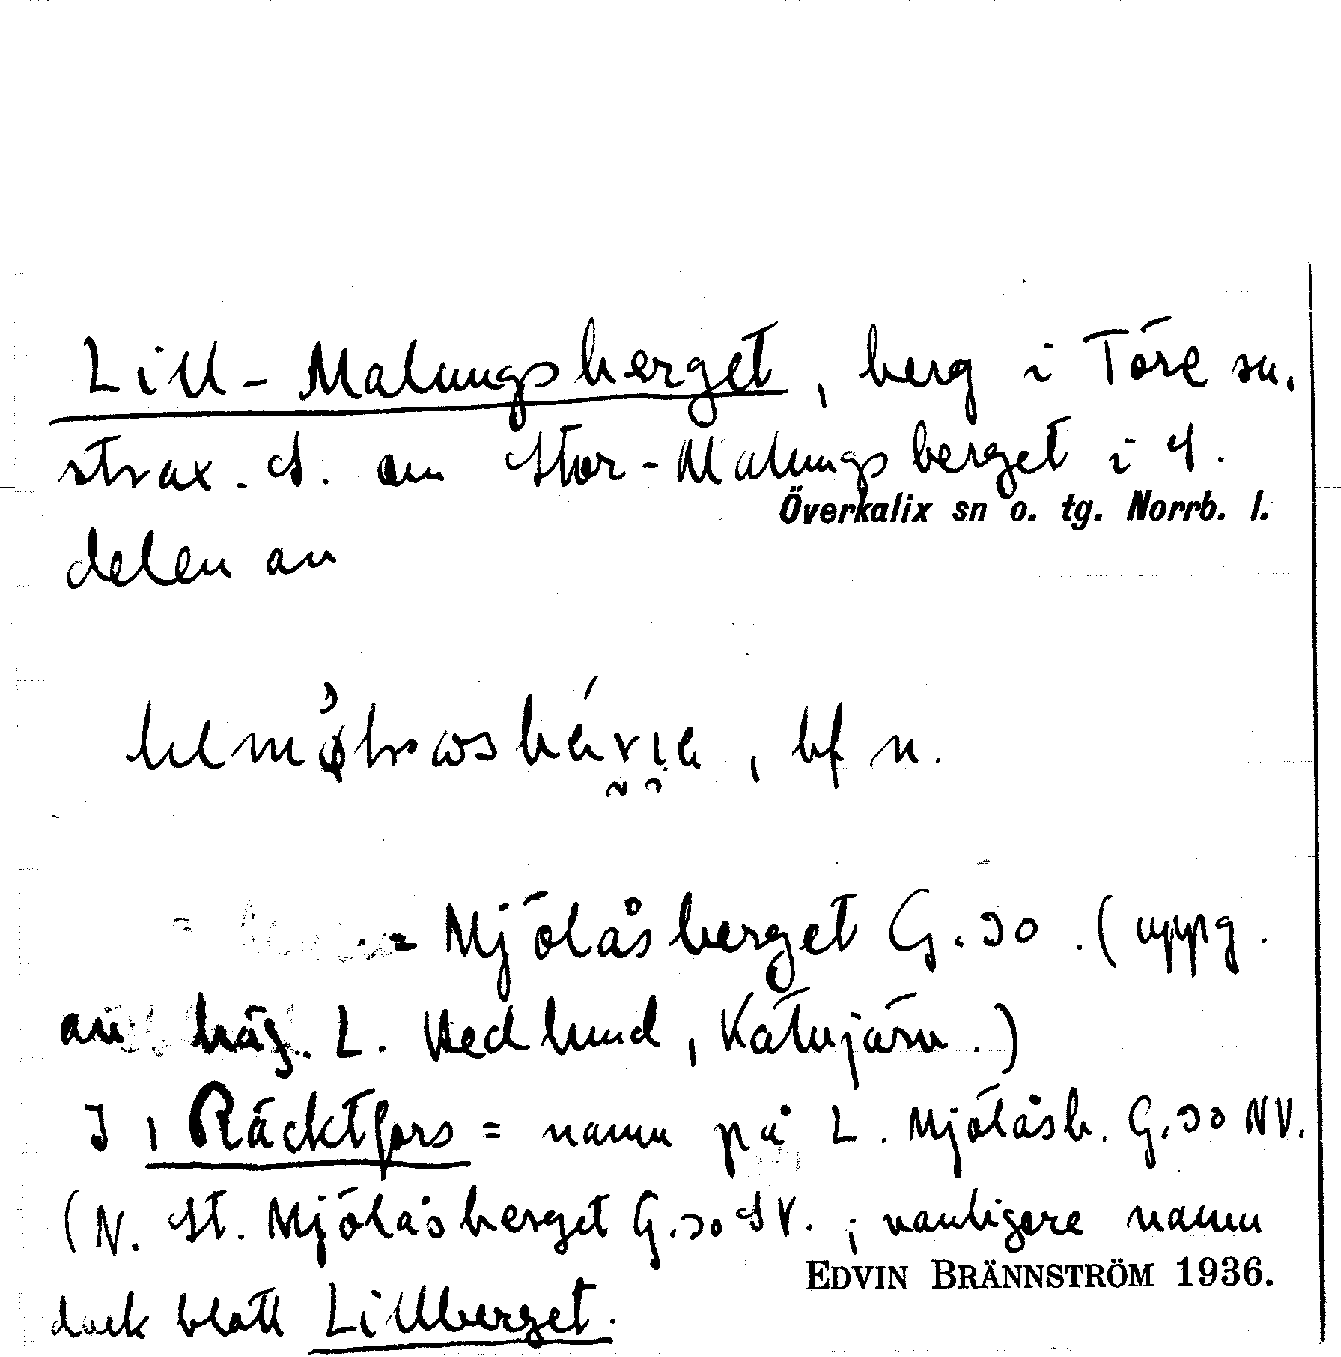 Lill-Malungsberget, berg i Töre sn.
strax S. om Stor-Malungsberget i S.
Överkalix sn o. tg. Norrb. l.
delen av
, bf n.
= Mjölåsberget G.30. (uppg.
av häg. L. Hedlund, Kätujärv.)
I i Räcktfors = namn på L. Mjölåsb. G.30 NV.
(N. St. Mjölåsberget G.30 SV. ; vanligere namn
EDVIN BRÄNNSTRÖM 1936.
dock blott Lillberget.